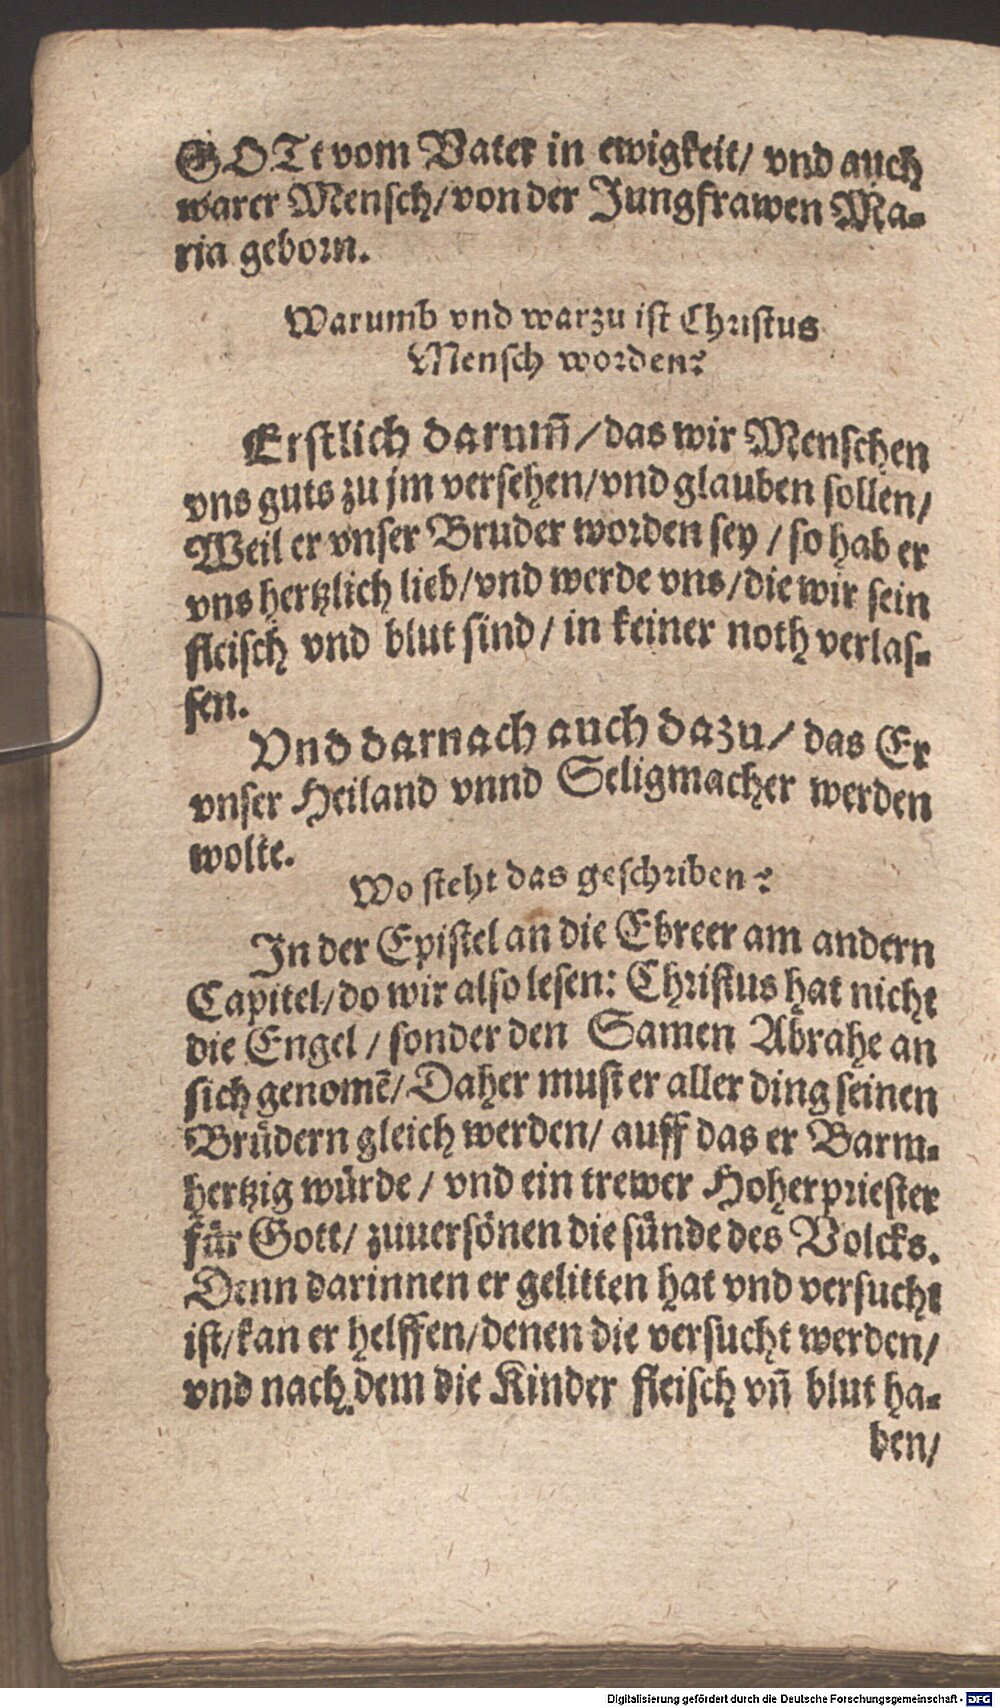 GOTt vom Vater in ewigkeit/ vnd auch
warer Mensch/ von der Jungfrawen Ma-
ria geborn.
Warumb vnd warzu ist Christus
Mensch worden?
Erstlich darum̃/ das wir Menschen
vns guts zu jm versehen/ vnd glauben sollen/
Weil er vnser Bruder worden sey/ so hab er
vns hertzlich lieb/ vnd werde vns/ die wir sein
fleisch vnd blut sind/ in keiner noth verlas-
sen.
Vnd darnach auch dazu/ das Er
vnser Heiland vnnd Seligmacher werden
wolte.
Wo steht das geschriben?
In der Epistel an die Ebreer am andern
Capitel/ do wir also lesen: Christus hat nicht
die Engel/ sonder den Samen Abrahe an
sich genomẽ/ Daher must er aller ding seinen
Brüdern gleich werden/ auff das er Barm-
hertzig würde/ vnd ein trewer Hoherpriester
für Gott/ zuuersönen die sünde des Volcks.
Denn darinnen er gelitten hat vnd versucht
ist/ kan er helffen/ denen die versucht werden/
vnd nach dem die Kinder fleisch vñ blut ha-
ben/
Digitalisierung gefördert durch die Deutsche Forschungsgemeinschaft - DFG